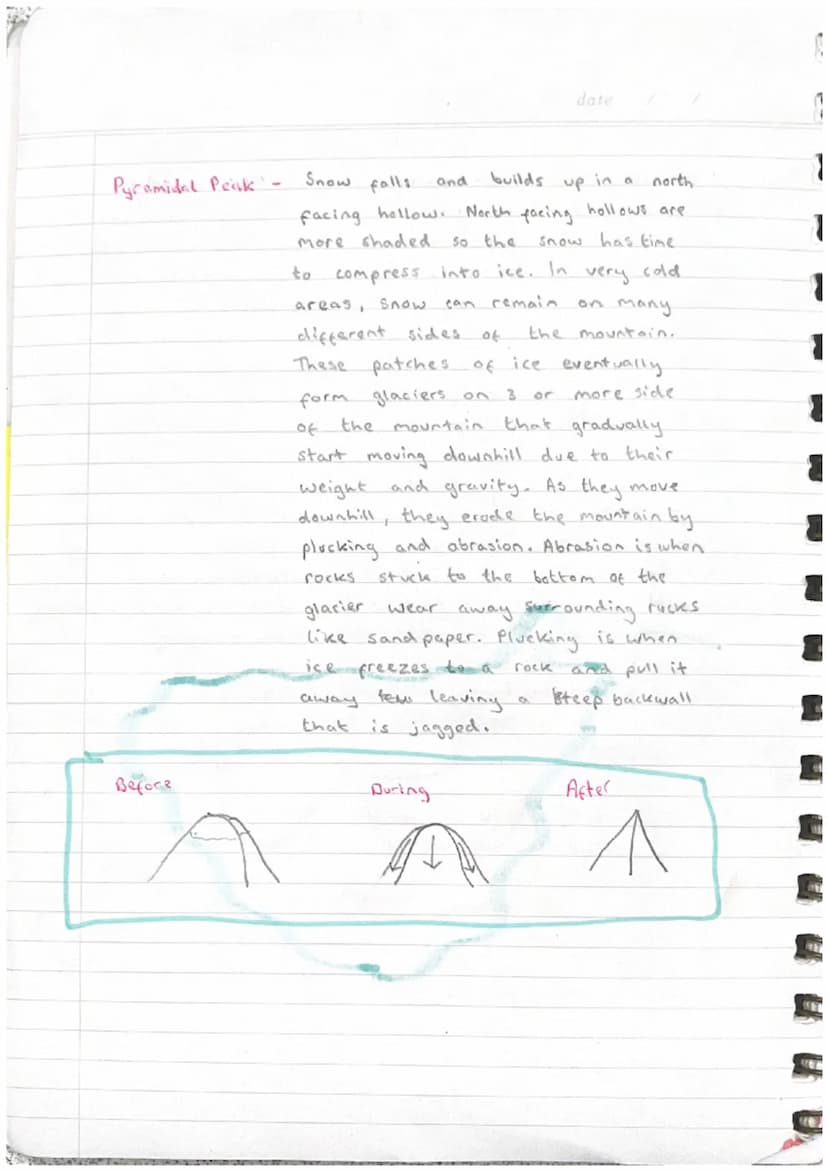 date / /
Pyramidal Peak - Snow falls and builds up in a north
facing hollow. North facing hollows are
more shaded so the snow has time
to compress into ice. In very cold
areas, snow can remain on many
different sides of the mountain.
These patches of ice eventually
form glaciers on 3 or more side
of the mountain that gradually
start moving downhill due to their
weight and gravity. As they move
downhill, they erode the mountain by
plucking and abrasion. Abrasion is when
rocks stuck to the bottom of the
glacier wear away surrounding rocks
like sandpaper. Plucking is when
ice freezes to a rock and pull it
away leaving a steep backwall
that is jagged.
Before During After